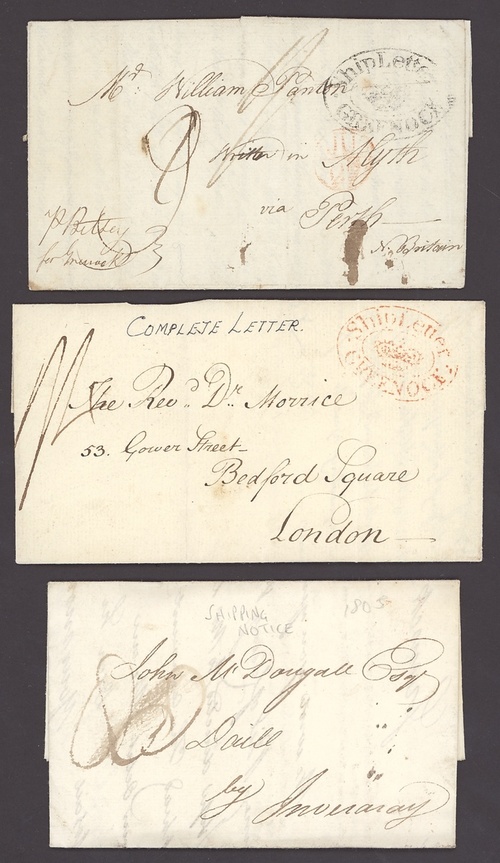 Ship Letter
GREENOCK
Mr. William Panton
Writer in Alyth
via Perth
N. Britain
pr Betsey
for Greenock
COMPLETE LETTER.
Ship Letter
GREENOCK
The Revd. Dr. Morrice
53. Gower Street
Bedford Square
London
SHIPPING
NOTICE
1805
John McDougall Esqr
Daill
by Inveraray